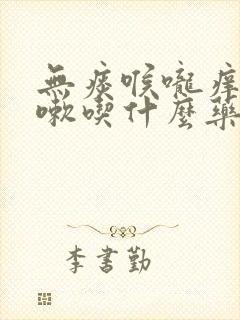 無痰喉嚨癢
嗽喫什麼藥
李書勤